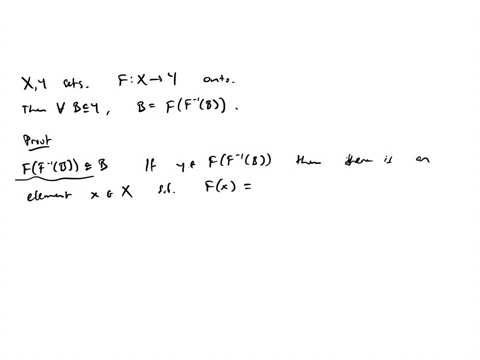 X, Y sets. F: X → Y onto.
Then ∀ B ⊆ Y, B = F(F⁻¹(B)).
Proof
F(F⁻¹(B)) ⊆ B If y ∈ F(F⁻¹(B)) then there is an
element x ∈ X s.t. F(x) =